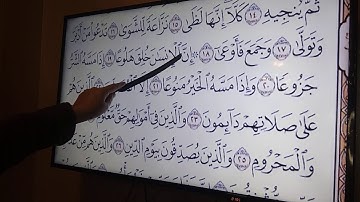 ثُمَّ يُنجِيهِ ١٤ كَلَّآ إِنَّهَا لَظَىٰ ١٥ نَزَّاعَةً لِّلشَّوَىٰ ١٦ تَدْعُوا۟ مَنْ أَدْبَرَ
وَتَوَلَّىٰ ١٧ وَجَمَعَ فَأَوْعَىٰٓ ١٨ إِنَّ ٱلْإِنسَٰنَ خُلِقَ هَلُوعًا ١٩ إِذَا مَسَّهُ ٱلشَّرُّ
جَزُوعًا ٢٠ وَإِذَا مَسَّهُ ٱلْخَيْرُ مَنُوعًا ٢١ إِلَّا
عَلَىٰ صَلَاتِهِمْ دَآئِمُونَ ٢٣ وَٱلَّذِينَ فِىٓ أَمْوَٰلِهِمْ حَقٌّ مَّعْلُومٌ
وَٱلْمَحْرُومِ ٢٥ وَٱلَّذِينَ يُصَدِّقُونَ بِيَوْمِ ٱلدِّينِ ٢٦ وَٱلَّذِينَ هُم مِّنْ